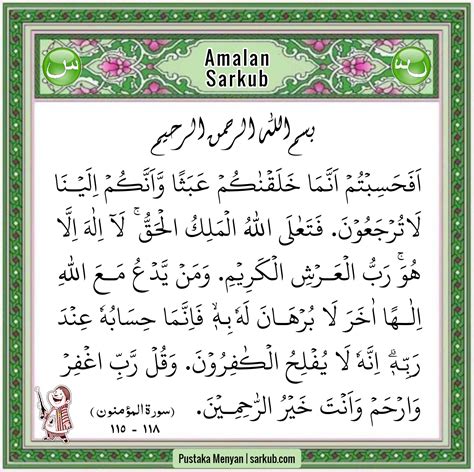 Amalan
Sarkub
بسم الله الرحمن الرحيم
اَفَحَسِبْتُمْ اَنَّمَا خَلَقْنٰكُمْ عَبَثًا وَّاَنَّكُمْ اِلَيْنَا
لَا تُرْجَعُوْنَ. فَتَعٰلَى اللهُ الْمَلِكُ الْحَقُّۚ لَآ اِلٰهَ اِلَّا
هُوَۚ رَبُّ الْعَرْشِ الْكَرِيْمِ. وَمَنْ يَّدْعُ مَعَ اللهِ
اِلٰـهًا اٰخَرَ لَا بُرْهَانَ لَهٗ بِهٖۙ فَاِنَّمَا حِسَابُهٗ عِنْدَ
رَبِّهٖۗ اِنَّهٗ لَا يُفْلِحُ الْكٰفِرُوْنَ. وَقُلْ رَّبِّ اغْفِرْ
وَارْحَمْ وَاَنْتَ خَيْرُ الرّٰحِمِيْنَ.
(سورة المؤمنون)
١١٨ - ١١٥
Pustaka Menyan | sarkub.com